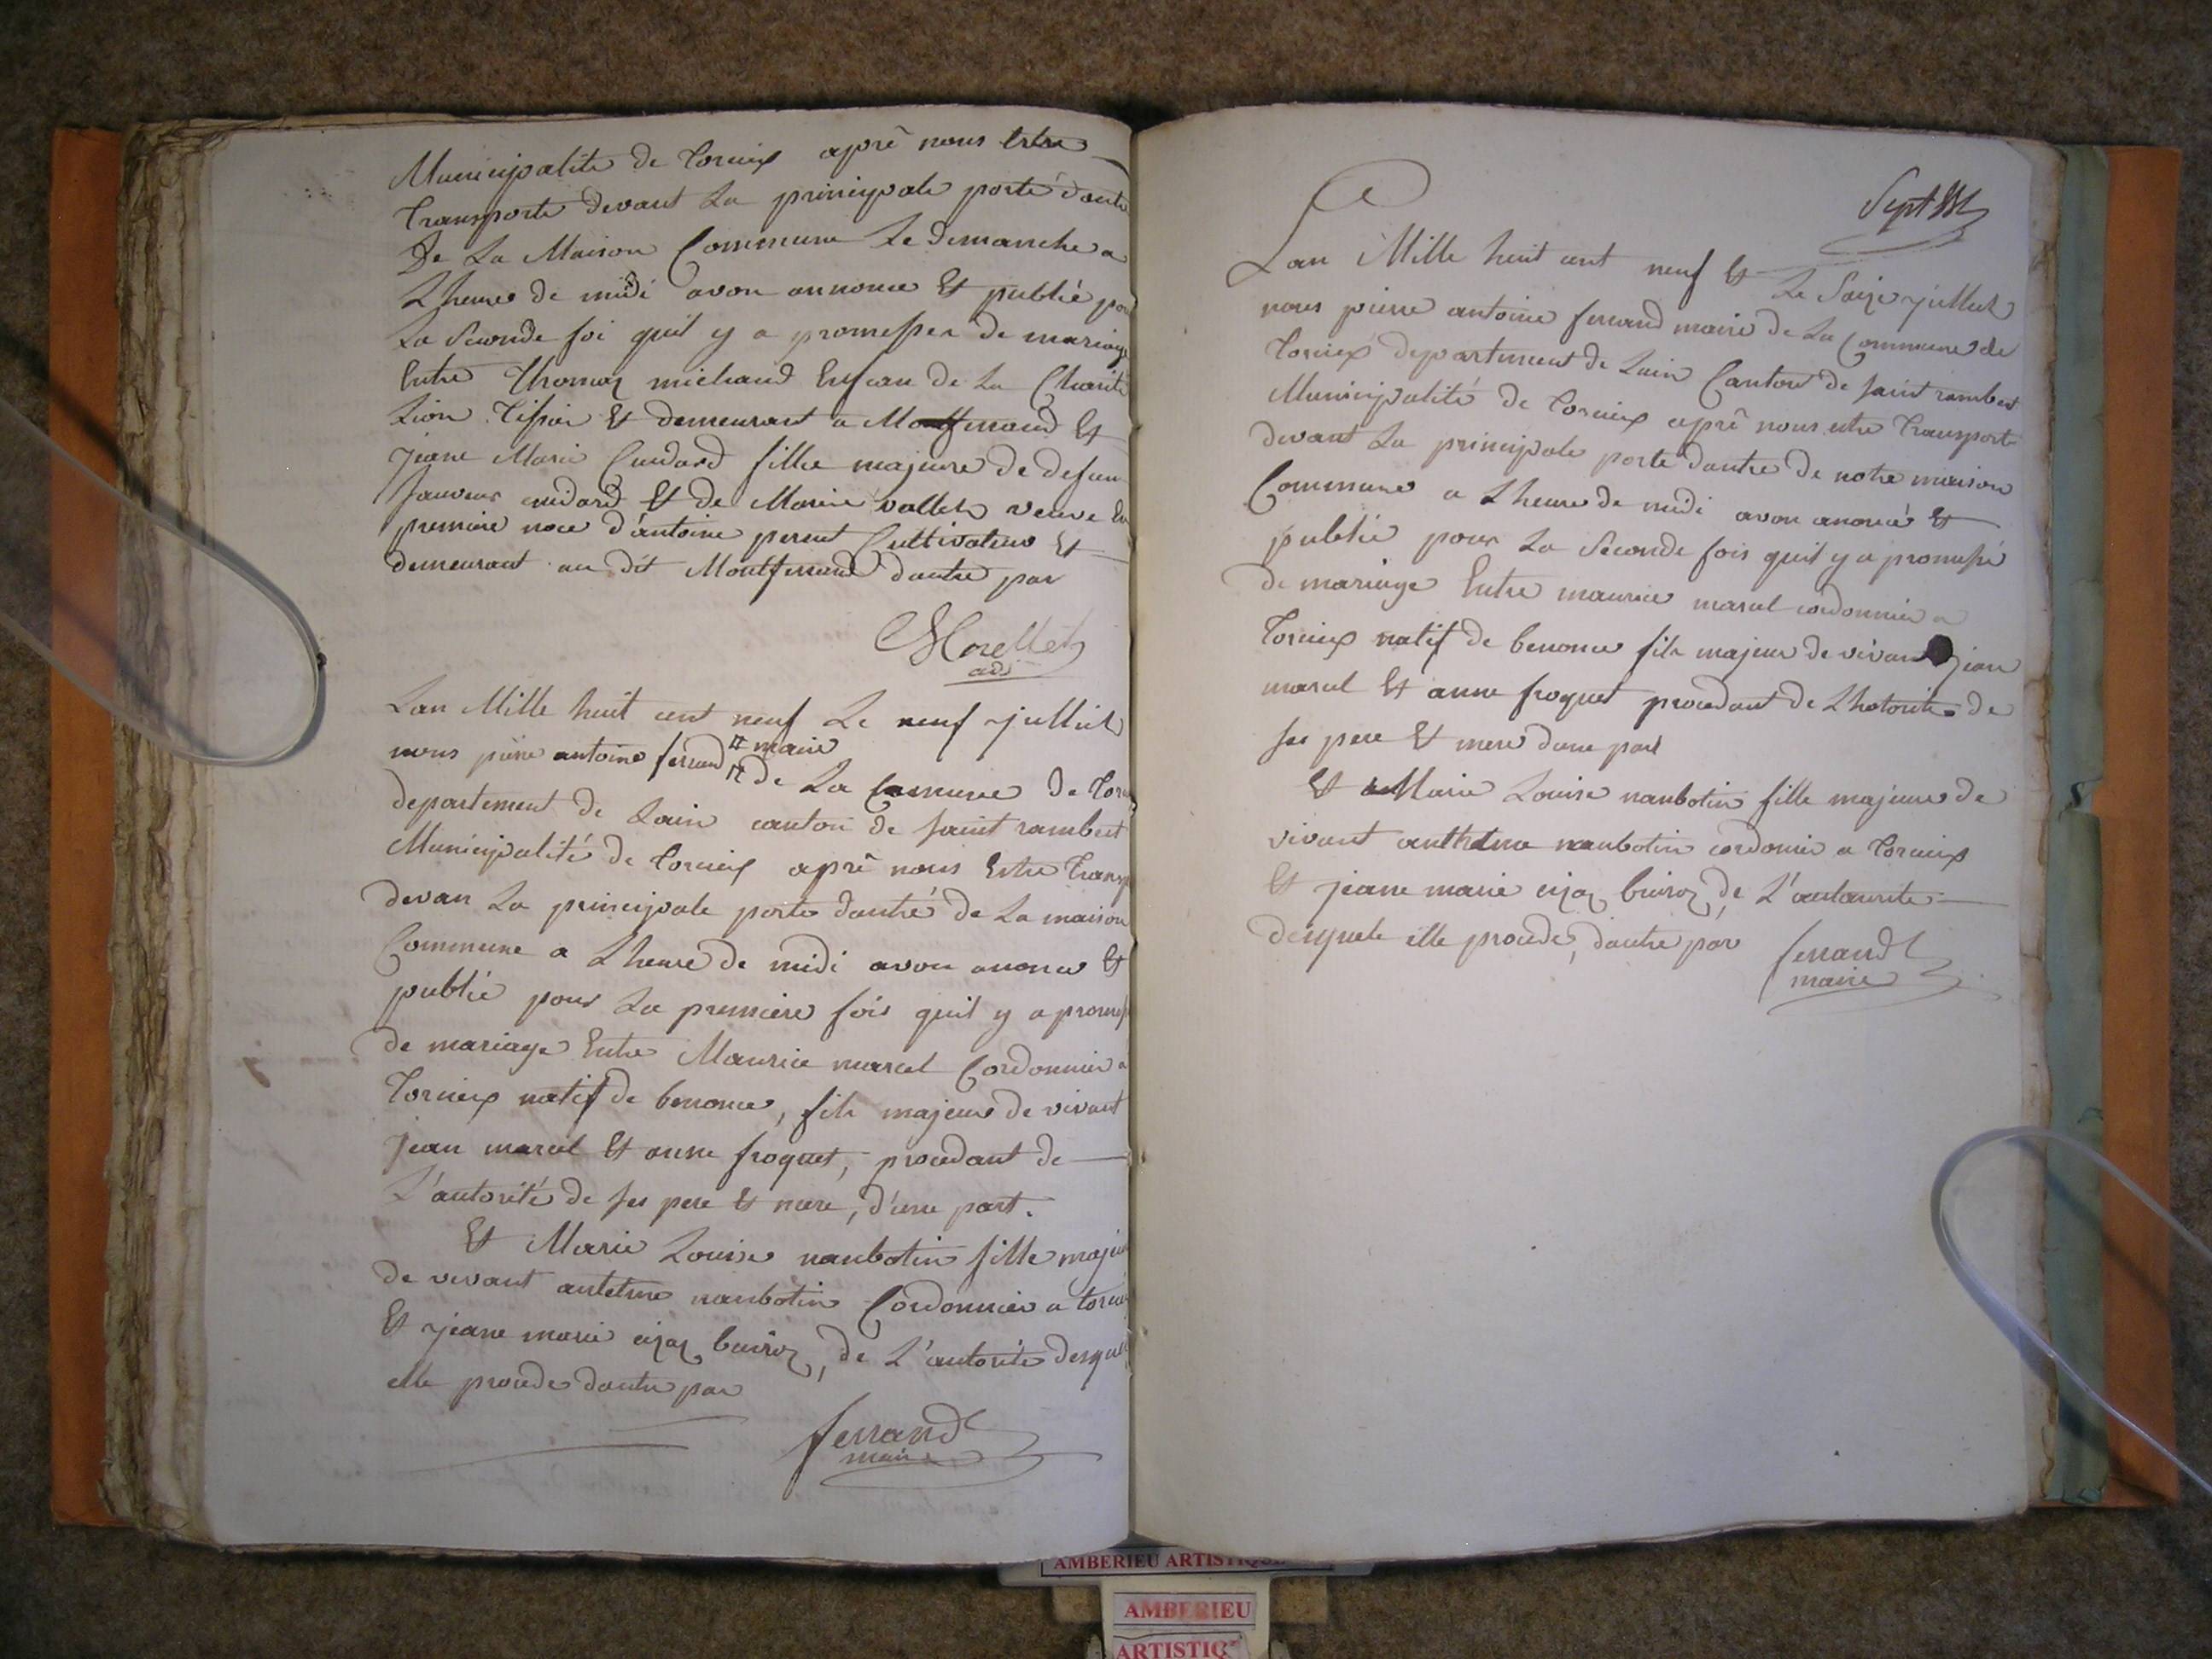 Municipalite de Torcieux aprê nous Estre
Transporté devant La principale porte dantré
De La Maison Commune Le dimanche a
Lheure de midi avon annoncé Et publié pour
La Seconde foi quil y a promesses de mariage
Entre Thomas michaud Enfan de La Charité
Lion Tissier Et demeurant a Montferrand Et
jeane Marie Cuidard fille majeure de defun
Sauveur cuidard Et de Marie vallet veuve En
premiere noce d'antoine perret Cultivateur Et
demeurant au dit Montferrand dautre par
Morellet
adj
Lan Mille huit cent neuf Le neuf julliet
nous piere antoine ferrand # maire
# de La Commune de Torcieux
departement de Lain canton de saint rambert
Municipalité de Torcieux aprê nous Estre Transp
devan La principale porte dantré de La maison
Commune a Lheure de midi avon anoncé Et
publié pour La premiere fois quil y a promess
de mariage Entre Maurice marcel Cordonnier a
Torcieux natif de benonce, fils majeur de vivant
jean marcel Et anne froquet, procedant de
L'autorité de ses pere Et mere, d'une part.
Et Marie Louise naubotin fille majeure
de vivant antelme naubotin Cordonnier a torcieux
Et jeane marie cizoz buiroz, de L'autorité desquel
elle procede dautre par
ferrand
maire
Sept
Lan Mille huit cent neuf Et Le Seize juillet
nous pierre antoine ferrand maire de La Commune de
Torcieux departement de Lain Canton de saint rambert
Municipalité de Torcieux aprê nous estre Transporté
devant La principale porte dantré de notre maison
Commune a Lheure de midi avon anoncé Et
publié pour La Seconde fois quil y a promesse
de mariage Entre maurice marcel cordonnier a
Torcieux natif de benonce fils majeur de vivan jean
marcel Et anne froquet procedant de Lhotorité de
ses pere Et mere dune part
Et Marie Louise naubotin fille majeure de
vivant anthelme naubotin cordonier a Torcieux
Et jeane marie cizoz buiroz, de L'autaurité
desquele elle procede, dautre par
ferrand
maire
AMBERIEU ARTISTIQUE
AMBERIEU
ARTISTIQ